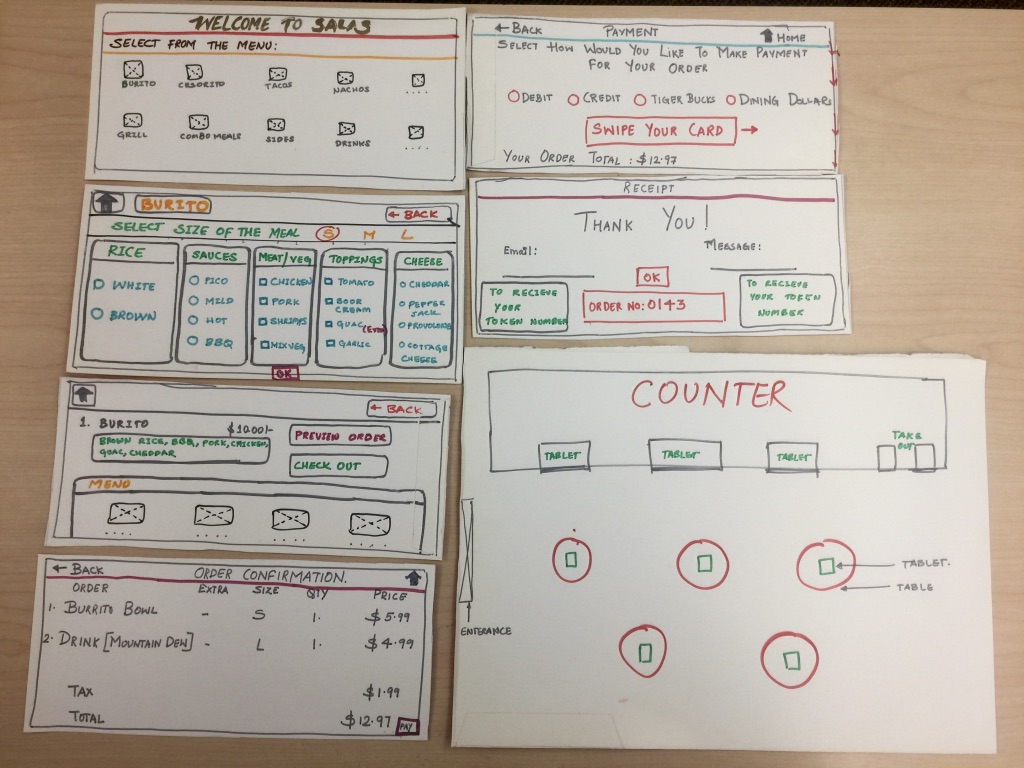 WELCOME TO SALAS
SELECT FROM THE MENU:
BURITO CESORITO TACOS NACHOS ....
GRILL COMBO MEALS SIDES DRINKS ....
BURITO
← BACK
SELECT SIZE OF THE MEAL S M L
RICE
WHITE
BROWN
SAUCES
PICO
MILD
HOT
BBQ
MEAT/VEG
CHICKEN
PORK
SHRIMPS
MIXVEG
TOPPINGS
TOMATO
SOUR
CREAM
GUAC (Extra)
GARLIC
CHEESE
CHEDDAR
PEPPER
JACK
PROVOLONE
COTTAGE
CHEESE
OK
← BACK
1. BURITO $10.00/-
BROWN RICE, BBQ, PORK, CHICKEN,
GUAC, CHEDDAR
PREVIEW ORDER
CHECK OUT
MENU
..... ..... ..... .....
← BACK ORDER CONFIRMATION.
ORDER EXTRA SIZE QTY PRICE
1. BURRITO BOWL - S 1. $5.99
2. DRINK [MOUNTAIN DEW] - L 1. $4.99
TAX $1.99
TOTAL $12.97 PAY
← BACK PAYMENT HOME
SELECT HOW WOULD YOU LIKE TO MAKE PAYMENT
FOR YOUR ORDER
DEBIT CREDIT TIGER BUCKS DINING DOLLARS
SWIPE YOUR CARD →
YOUR ORDER TOTAL : $12.97
RECEIPT
THANK YOU!
Email:
MESSAGE:
OK
TO RECIEVE
YOUR
TOKEN NUMBER
ORDER NO: 0143
TO RECIEVE
YOUR TOKEN
NUMBER
COUNTER
TABLET TABLET TABLET
TAKE
OUT
TABLET.
TABLE
ENTERANCE